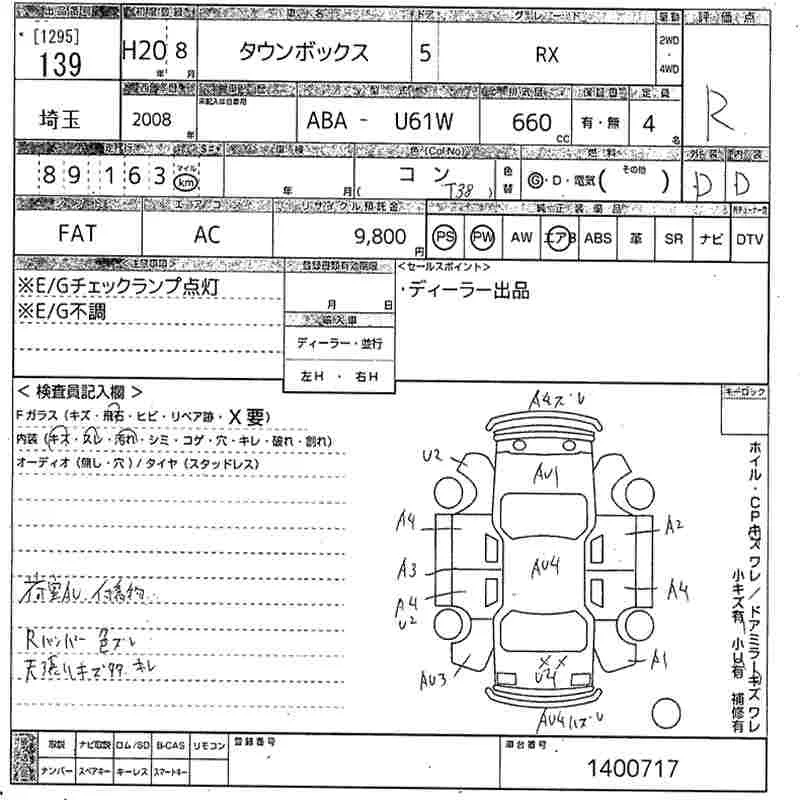 出品番号 初度登録年 車名 ドア グレード 駆動 評価点
[1295]
139
H20 8
年 月
タウンボックス
5
RX
2WD
・
4WD
R
埼玉
2008 年
未記入は自家用
型式
ABA - U61W
排気量
660 cc
有・無
定員
4 名
89,163
マイル
km
車検
年 月
色(Col No)
コン
(T38)
色替
燃料
G・D・電気( その他 )
外装 内装
D D
シフト
FAT
エアコン
AC
リサイクル預託金
9,800 円
純正装備品
PS PW AW エアB ABS 革 SR ナビ DTV
注意事項
※E/Gチェックランプ点灯
※E/G不調
登録書類有効期限
月 日
輸入車
ディーラー・並行
左H ・ 右H
<セールスポイント>
・ディーラー出品
< 検査員記入欄 >
Fガラス (キズ・飛石・ヒビ・リペア跡・X要)
内装 (キズ・スレ・汚れ・シミ・コゲ・穴・キレ・破れ・割れ)
オーディオ (無し・穴) / タイヤ (スタッドレス)
荷室AU
Rバンパー 色ズレ
キーロック
U2
AU1
A4
A2
A3
AU4
A4
U2
A4
AU3
XX
U4
A1
AU4
ホイル・CPキズワレ/ドアミラーキズワレ
小キズ有 小U有 補修有
取説 ナビ取説 ロム/SD B-CAS リモコン
ナンバー スペアキー キーレス スマートキー
登録番号
車台番号
1400717